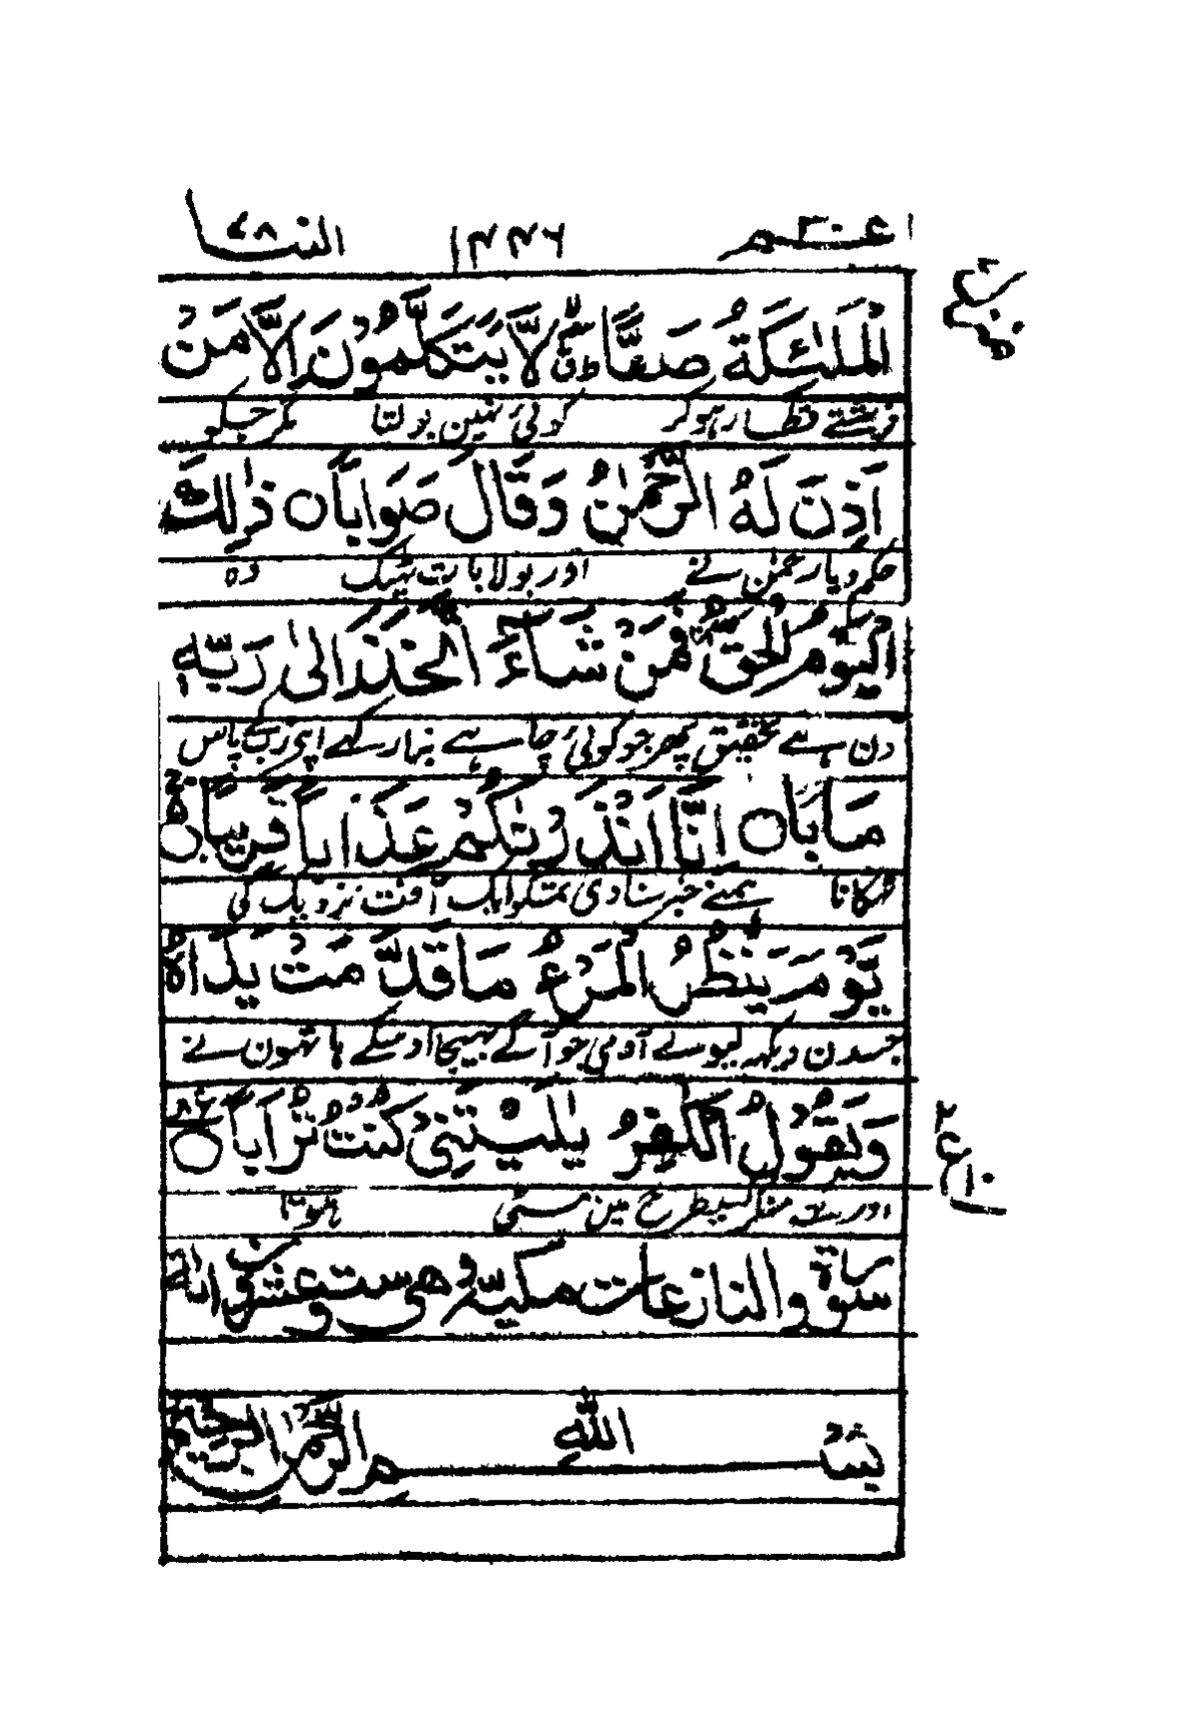 عم ٣٠ ١٤٤٦ النبا ٧٨
الْمَلٰٓئِكَةُ صَفًّا لَّا يَتَكَلَّمُوْنَ اِلَّا مَنْ
فرشتے قطار ہوکر کوئی نہین بولتا مگر جسکو
اَذِنَ لَهُ الرَّحْمٰنُ وَقَالَ صَوَابًا ۝ ذٰلِكَ
حکم دیا رحمٰن نے اور بولا بات ٹھیک وہ
الْيَوْمُ الْحَقُّ فَمَنْ شَآءَ اتَّخَذَ اِلٰى رَبِّهٖ
دن ہے تحقیق پھر جو کوئی چاہے بنا رکھے اپنے رب پاس
مَاٰبًا ۝ اِنَّآ اَنْذَرْنٰكُمْ عَذَابًا قَرِيْبًا
ٹھکانا ہمنے خبر سنا دی تمکو ایک آفت نزدیک کی
يَّوْمَ يَنْظُرُ الْمَرْءُ مَا قَدَّمَتْ يَدٰهُ
جسدن دیکھ لیوے آدمی جو آگے بھیجا اوسکے ہاتھون نے
وَيَقُوْلُ الْكٰفِرُ يٰلَيْتَنِيْ كُنْتُ تُرَابًا ۝
اور کہے منکر کسیطرح مین مٹی ہوتا
سورة والنازعات مكية وهي ست
بِسْمِ اللّٰهِ الرَّحْمٰنِ الرَّحِيْمِ